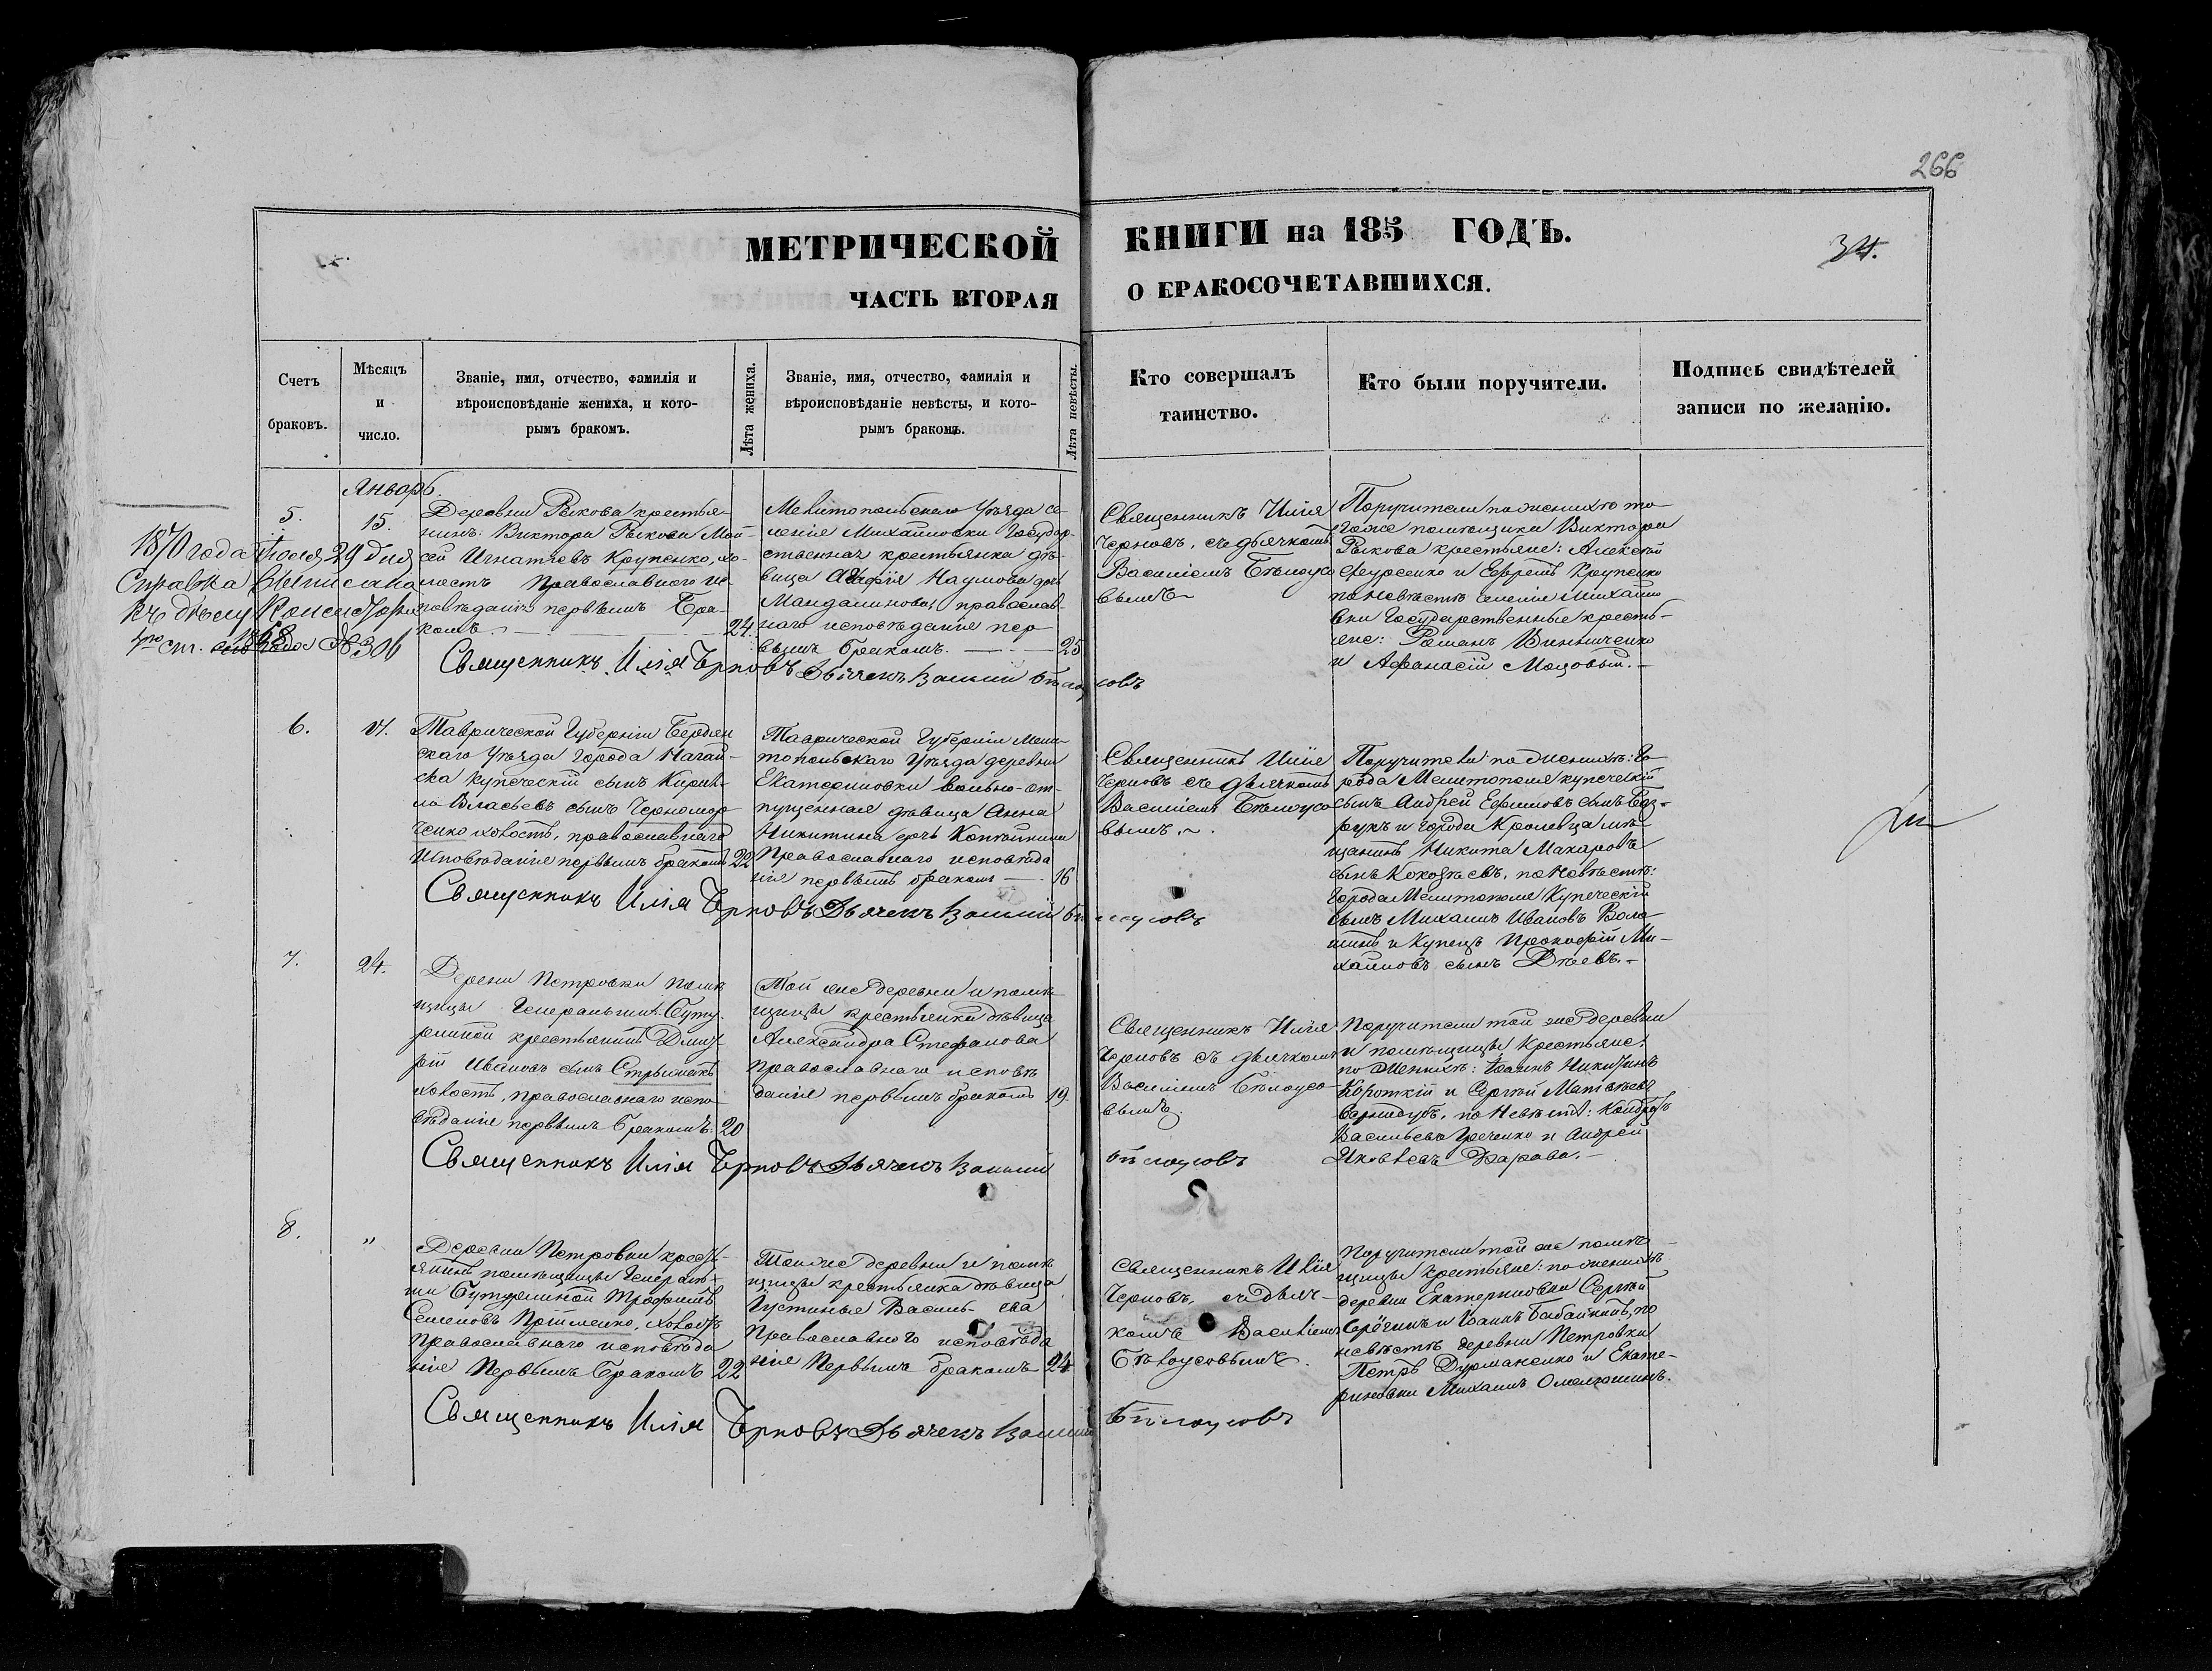 266
МЕТРИЧЕСКОЙ
КНИГИ на 185 ГОДЪ.
34.
ЧАСТЬ ВТОРАЯ
О БРАКОСОЧЕТАВШИХСЯ.
Счетъ
браковъ.
Мѣсяцъ
и
число.
Званіе, имя, отчество, фамилія и
вѣроисповѣданіе жениха, и кото-
рымъ бракомъ.
Лѣта жениха.
Званіе, имя, отчество, фамилія и
вѣроисповѣданіе невѣсты, и кото-
рымъ бракомъ.
Лѣта невѣсты.
Кто совершалъ
таинство.
Кто были поручители.
Подпись свидѣтелей
записи по желанію.
1870 года Іюля 29 дня
Справка выписана
къ дѣлу
1868 года № 306
Январь
5.
15.
Деревни Рыкова крестья-
нинъ Виктора Рыкова Мои-
сей Игнатьевъ Крупенко, хо-
лостъ Православнаго ис-
повѣданія первымъ бра-
комъ.
24.
Мелитопольскаго Уѣзда се-
ленія Михайловки Государ-
ственная крестьянка дѣ-
вица Агафія Наумова дочь
православ-
наго исповѣданія пер
вымъ бракомъ.
25
Священникъ Илія
Черновъ, съ дьячкомъ
Василіемъ Бѣлоусо
вымъ
Поручители по женихѣ то
гоже помѣщика Виктора
Рыкова крестьяне: Алексѣй
и Ефремъ Крупенко
по невѣстѣ селенія Михайло
вки Государственные кресть-
яне: Романъ Винниченко
и Афанасій
Священникъ Илія Черновъ Дьячекъ Василій Бѣлоусовъ
6.
17.
Таврической Губерніи Бердян
скаго Уѣзда Города Нагай-
ска купеческій сынъ Кирил-
ло Власьевъ сынъ Черномор
ченко холостъ, православнаго
Исповѣданія первымъ бракомъ
22
Таврической Губерніи Мели-
топольскаго Уѣзда деревни
Екатериновки вольно-от-
пущенная дѣвица Анна
Никитина дочь
Православнаго исповѣда
нія первымъ бракомъ
16
Священникъ Илія
Черновъ съ дьячкомъ
Василіемъ Бѣлоусо
вымъ.
Поручители по женихѣ: Го
рода Мелитополя купеческій
сынъ Андрей Ефимовъ сынъ
и города Кролевца мѣ
щанинъ Никита Макаровъ
сынъ по Невѣстѣ:
Города Мелитополя Купеческій
сынъ Михаилъ Ивановъ Воло
шинъ и Купецъ Прокофій Ми-
хайловъ сынъ Дѣевъ.
Священникъ Илія Черновъ Дьячекъ Василій Бѣлоусовъ
7.
24.
Деревни Петровки помѣ
щицы Генеральши Буту
рлиной крестьянинъ Дмит
рій Ивановъ сынъ
холостъ, православнаго испо-
вѣданія первымъ бракомъ.
20
Той же деревни и помѣ
щицы крестьянка дѣвица
Александра Стефанова
православнаго исповѣ
данія первымъ бракомъ
19.
Священникъ Илія
Черновъ съ дьячкомъ
Василіемъ Бѣлоусо-
вымъ.
Поручители той же деревни
и помѣщицы Крестьяне:
по Женихѣ: Іоаннъ Никитинъ
Короткій и Сергѣй Матвѣевъ
по Невѣстѣ: Кондратъ
Васильевъ и Андрей
Яковлевъ
Священникъ Илія Черновъ Дьячекъ Василій Бѣлоусовъ
8.
"
Деревни Петровки крестья-
янинъ помѣщицы Генераль-
ши Бутурлиной Трофимъ
Семеновъ холостъ
Православнаго исповѣда
нія Первымъ бракомъ
22
Той же деревни и помѣ
щицы крестьянка дѣвица
Іустинья Василь ева
Православнаго исповѣда
нія Первымъ бракомъ
24
Священникъ Илія
Черновъ, съ дьяч-
комъ Василіемъ
Бѣлоусовымъ.
Поручители той же помѣ-
щицы крестьяне: по женихѣ
деревни Екатериновки Сергѣй
и Іоаннъ по
невѣстѣ деревни Петровки
Петръ и Екате-
риновки Михаилъ
Священникъ Илія Черновъ Дьячекъ Василій Бѣлоусовъ